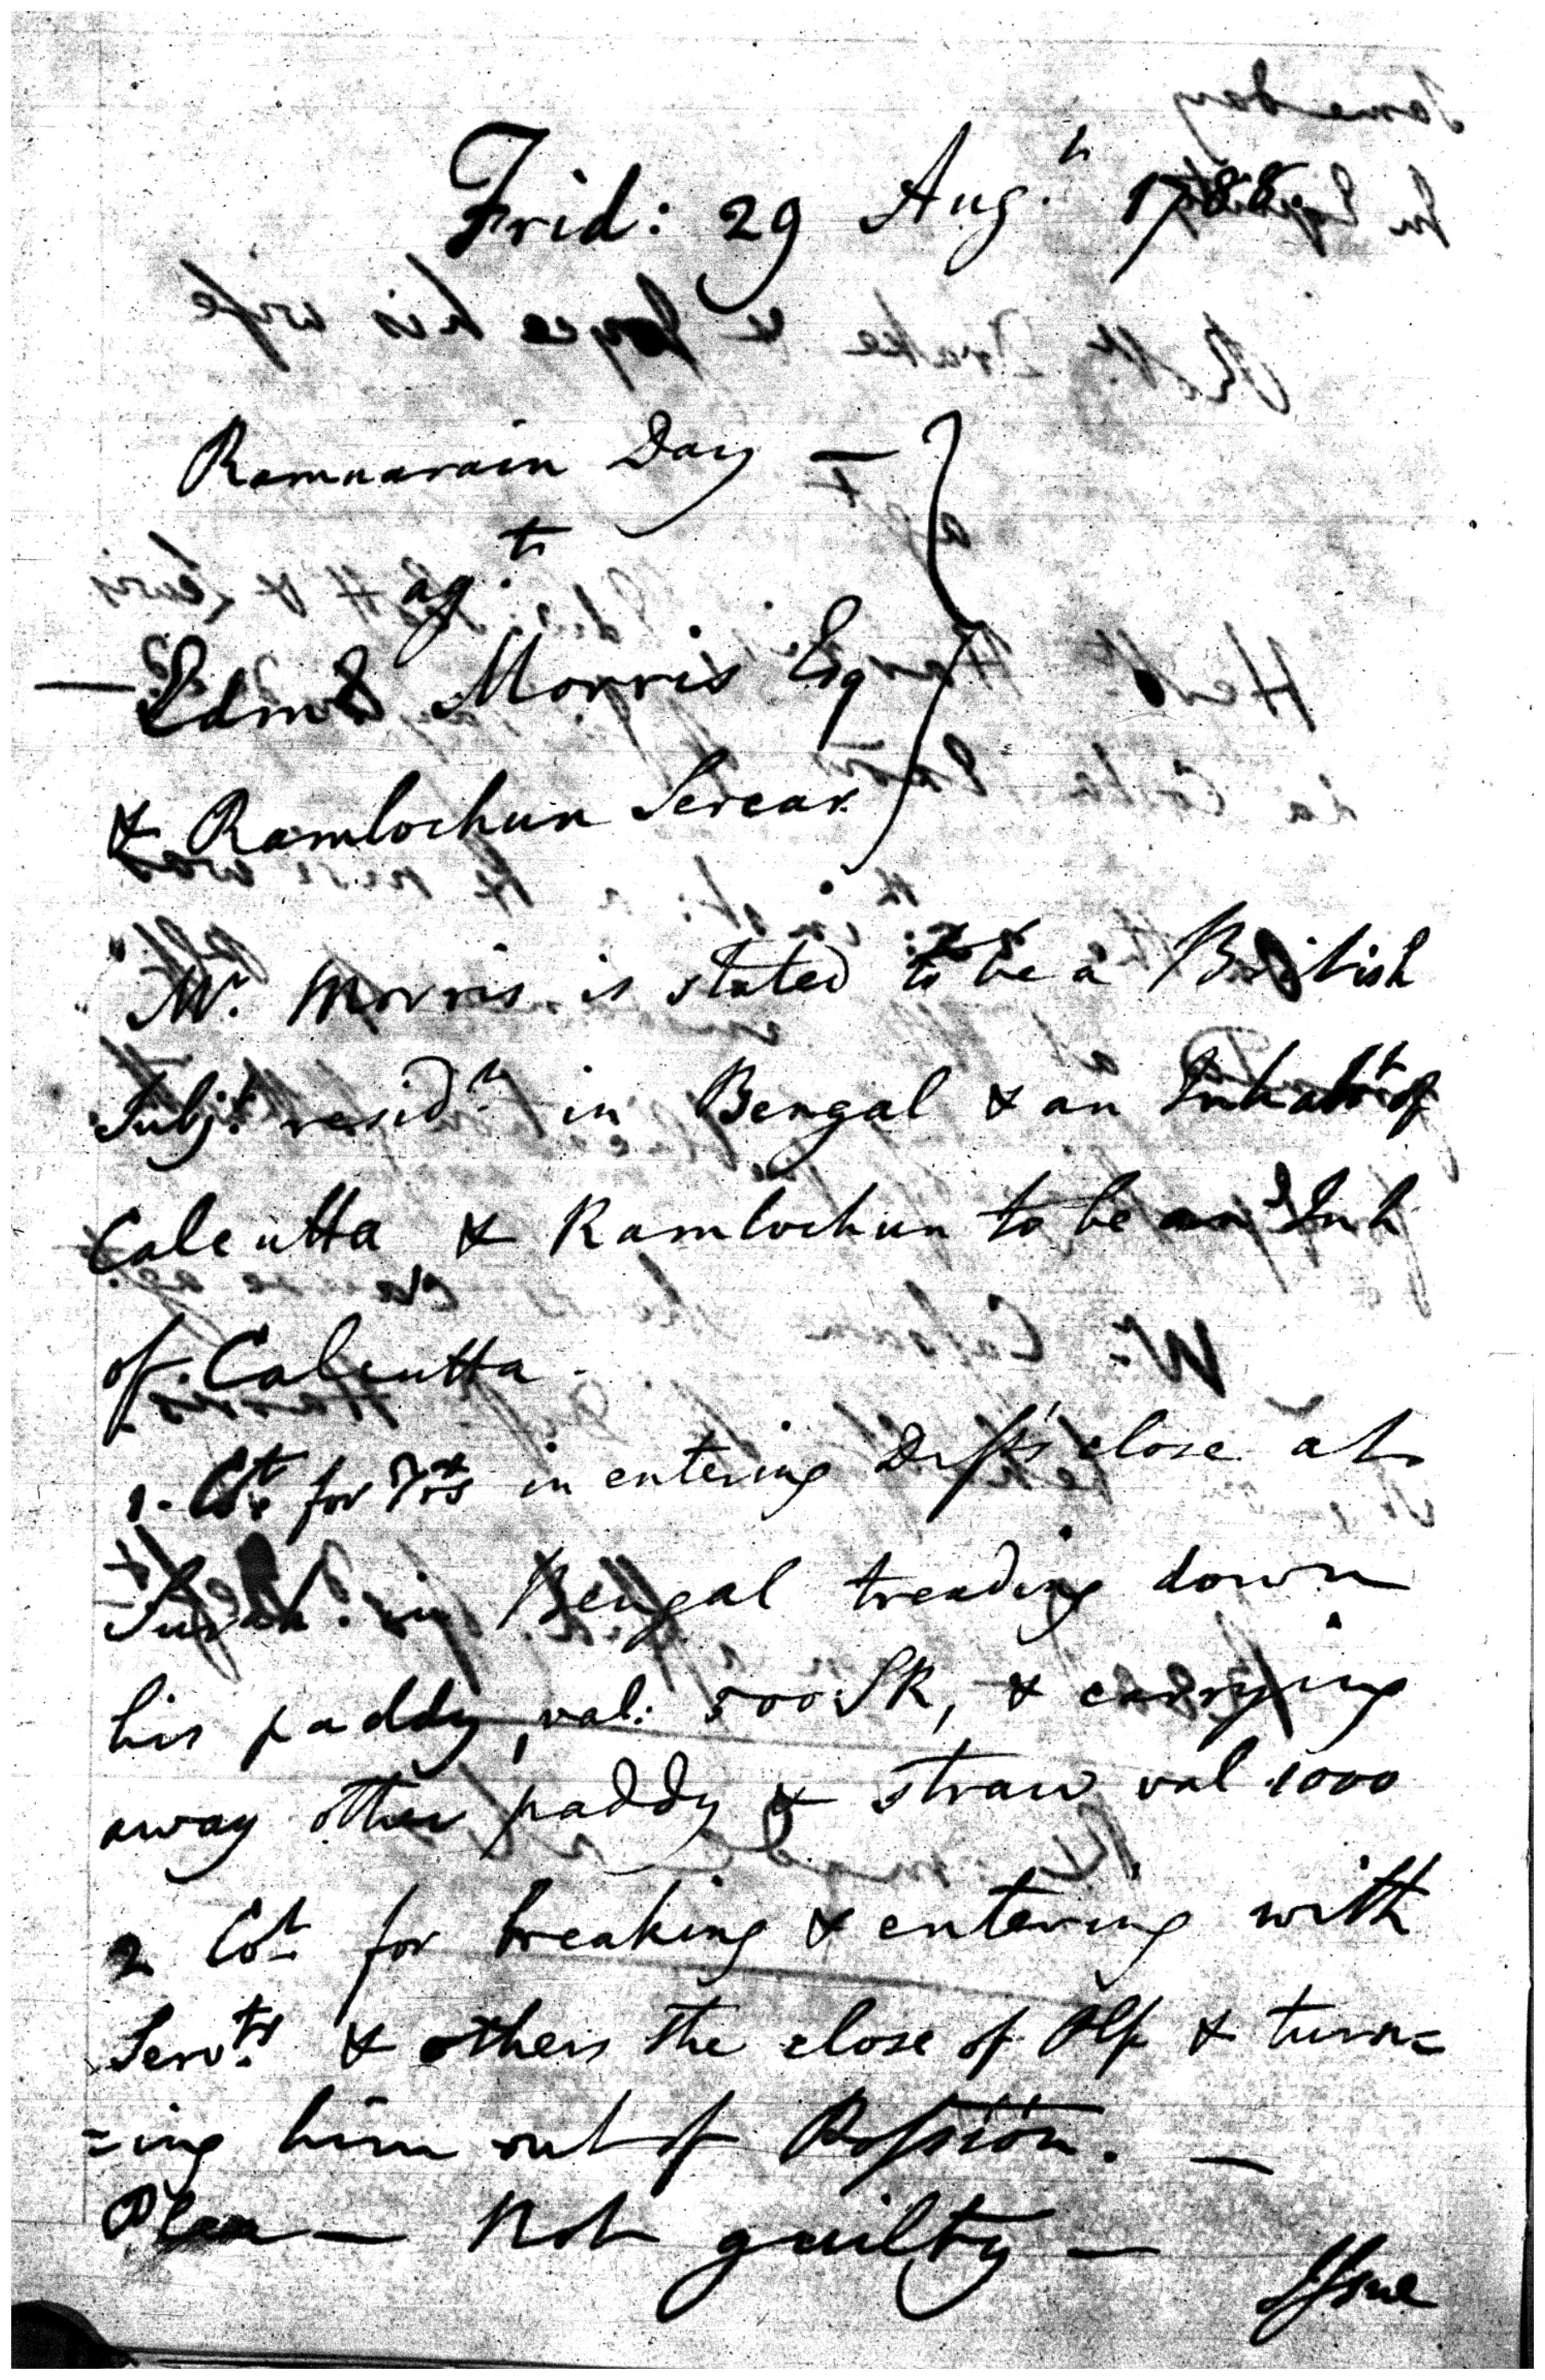 Frid: 29 Aug.t 1788.
Ramnarain Day —
ag.t
— Edm.d Morris Esq
& Ramlochun Sercar
Mr. Morris is stated to be a British
Subj.t resid.t in Bengal & an Inhab.t of
Calcutta & Ramlochun to be an Inh
of Calcutta.
1. Ct. for Trs in entering Deft's close at
in Bengal treading down
his paddy, val: 500 SR, & carrying
away other paddy & straw val 1000
2 Ct. for breaking & entering with
Serv.ts & others the close of Plf & turn=
=ing him out of Possion. —
Plea — Not guilty —
Issue